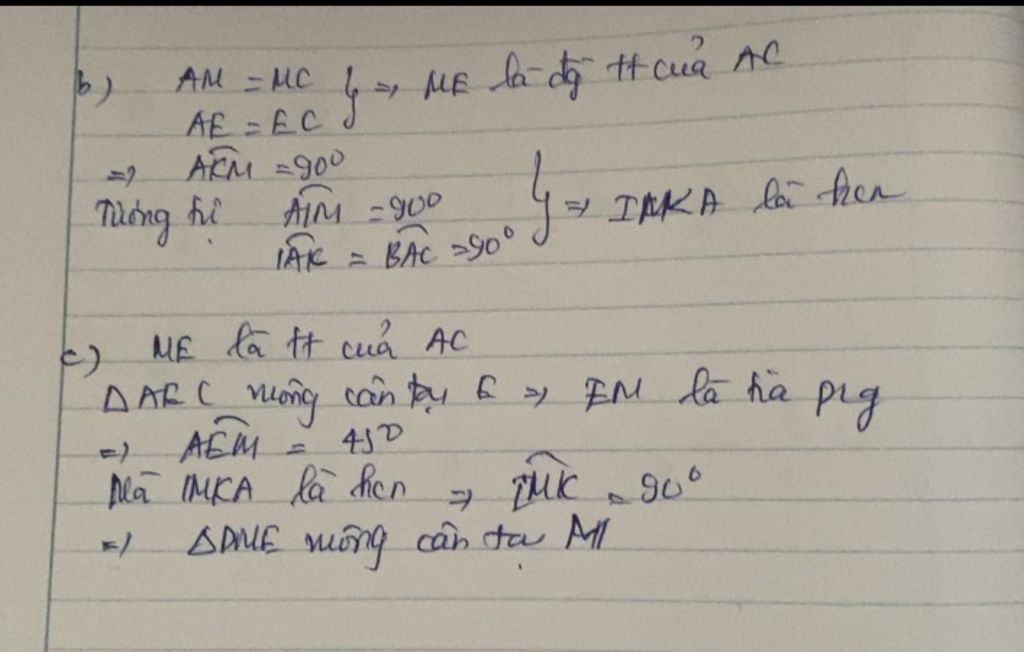 b) AM = MC } => ME là đg tt của AC
AE = EC
=> AKM = 90°
Tương tự AIM = 90° } => IMKA là hcn
IAK = BAC = 90°
c) ME là tt của AC
ΔAEC vuông cân tại E => EM là tia p/g
=> AEM = 45°
Mà IMKA là hcn => IMK = 90°
=> ΔDME vuông cân tại M